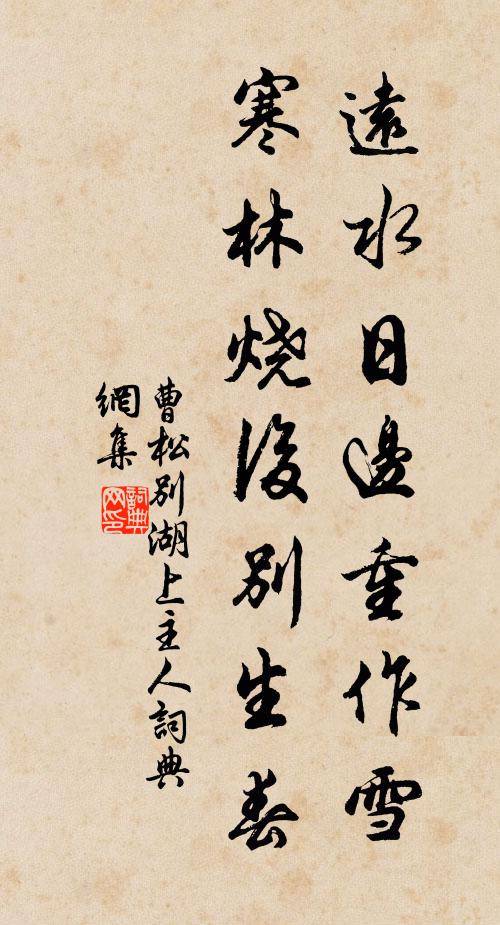 遠水日邊重作雪
寒林燒後別生春
曹松別湖上主人詞典
網集
詞典
网印